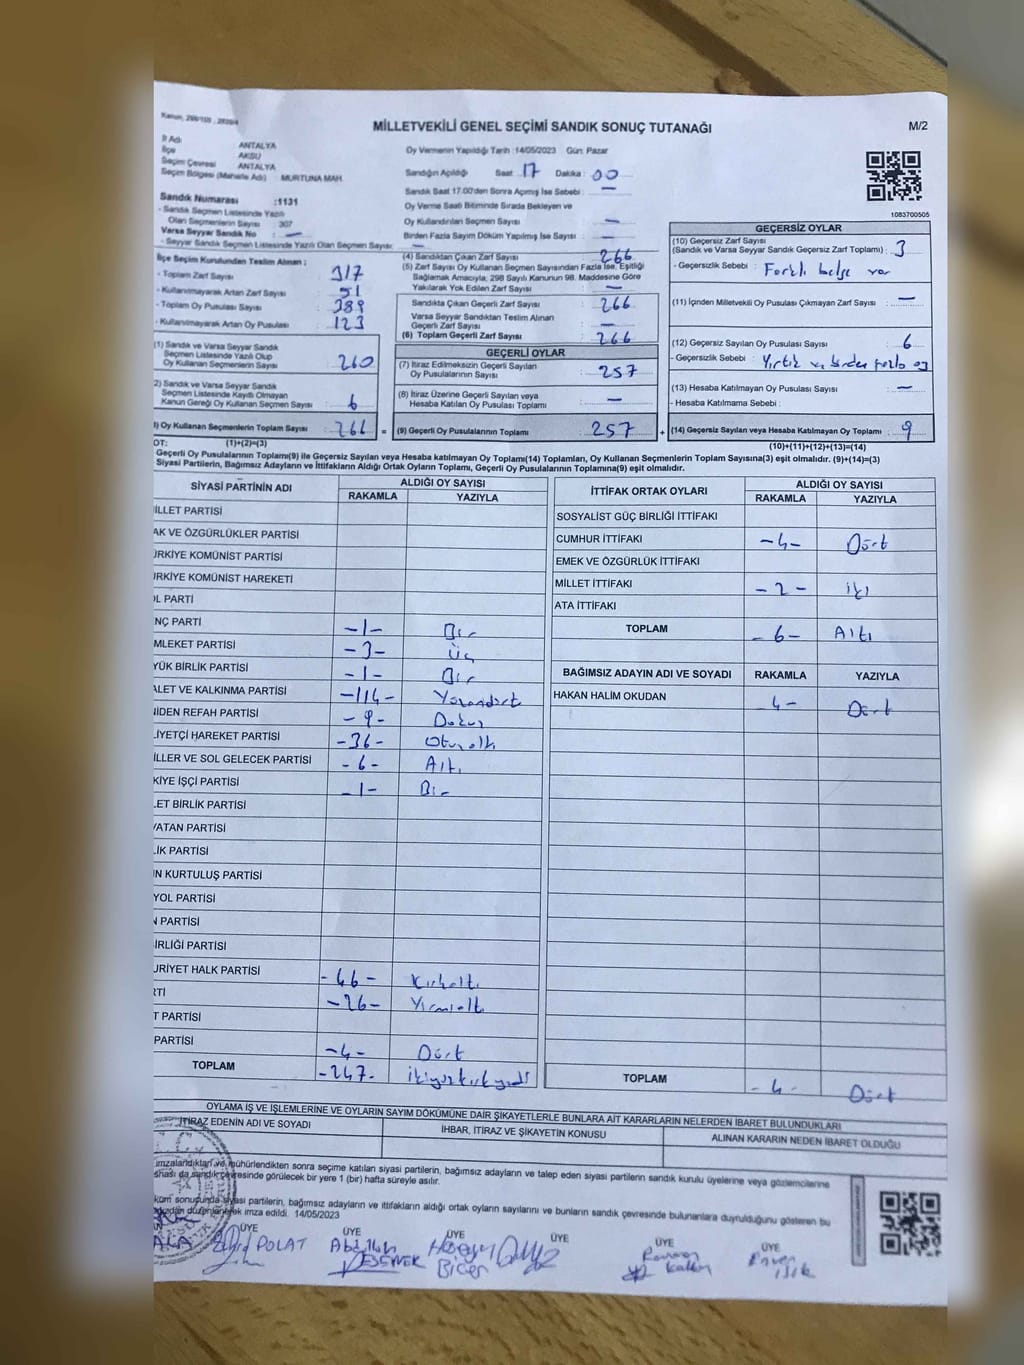 Kanun, 298/105 , 2839/4
MİLLETVEKİLİ GENEL SEÇİMİ SANDIK SONUÇ TUTANAĞI
M/2
İl Adı ANTALYA
İlçe AKSU
Seçim Çevresi ANTALYA
Seçim Bölgesi (Mahalle Adı) MURTUNA MAH.
Sandık Numarası :1131
- Sandık Seçmen Listesinde Yazılı
Olan Seçmenlerin Sayısı 307
Varsa Seyyar Sandık No : —
- Seyyar Sandık Seçmen Listesinde Yazılı Olan Seçmen Sayısı: —
Oy Vermenin Yapıldığı Tarih :14/05/2023 Gün: Pazar
Sandığın Açıldığı Saat : 17 Dakika : 00
Sandık Saat 17.00'den Sonra Açılmış İse Sebebi : —
Oy Verme Saati Bitiminde Sırada Bekleyen ve
Oy Kullandırılan Seçmen Sayısı : —
Birden Fazla Sayım Döküm Yapılmış İse Sayısı : —
1083700505
İlçe Seçim Kurulundan Teslim Alınan ;
- Toplam Zarf Sayısı : 317
- Kullanılmayarak Artan Zarf Sayısı : 51
- Toplam Oy Pusulası Sayısı : 389
- Kullanılmayarak Artan Oy Pusulası : 123
(1) Sandık ve Varsa Seyyar Sandık
Seçmen Listesinde Yazılı Olup
Oy Kullanan Seçmenlerin Sayısı : 260
2) Sandık ve Varsa Seyyar Sandık
Seçmen Listesinde Kayıtlı Olmayan
Kanun Gereği Oy Kullanan Seçmen Sayısı : 6
) Oy Kullanan Seçmenlerin Toplam Sayısı : 266 =
(4) Sandıktan Çıkan Zarf Sayısı : 266
(5) Zarf Sayısı Oy Kullanan Seçmen Sayısından Fazla İse, Eşitliği
Sağlamak Amacıyla; 298 Sayılı Kanunun 98. Maddesine Göre
Yakılarak Yok Edilen Zarf Sayısı : —
Sandıkta Çıkan Geçerli Zarf Sayısı : 266
Varsa Seyyar Sandıktan Teslim Alınan
Geçerli Zarf Sayısı : —
(6) Toplam Geçerli Zarf Sayısı : 266
GEÇERLİ OYLAR
(7) İtiraz Edilmeksizin Geçerli Sayılan
Oy Pusulalarının Sayısı : 257
(8) İtiraz Üzerine Geçerli Sayılan veya
Hesaba Katılan Oy Pusulası Toplamı : —
(9) Geçerli Oy Pusulalarının Toplamı : 257 +
GEÇERSİZ OYLAR
(10) Geçersiz Zarf Sayısı
(Sandık ve Varsa Seyyar Sandık Geçersiz Zarf Toplamı) : 3
- Geçersizlik Sebebi : Farklı belge var
(11) İçinden Milletvekili Oy Pusulası Çıkmayan Zarf Sayısı : —
(12) Geçersiz Sayılan Oy Pusulası Sayısı : 6
- Geçersizlik Sebebi : Yırtık ve birden fazla oy
(13) Hesaba Katılmayan Oy Pusulası Sayısı : —
- Hesaba Katılmama Sebebi :
(14) Geçersiz Sayılan veya Hesaba Katılmayan Oy Toplamı : 9
OT: (1)+(2)=(3)
(10)+(11)+(12)+(13)=(14)
Geçerli Oy Pusulalarının Toplamı(9) ile Geçersiz Sayılan veya Hesaba katılmayan Oy Toplamı(14) Toplamları, Oy Kullanan Seçmenlerin Toplam Sayısına(3) eşit olmalıdır. (9)+(14)=(3)
Siyasi Partilerin, Bağımsız Adayların ve İttifakların Aldığı Ortak Oyların Toplamı, Geçerli Oy Pusulalarının Toplamına(9) eşit olmalıdır.
SİYASİ PARTİNİN ADI ALDIĞI OY SAYISI
RAKAMLA YAZIYLA
İLLET PARTİSİ
AK VE ÖZGÜRLÜKLER PARTİSİ
ÜRKİYE KOMÜNİST PARTİSİ
ÜRKİYE KOMÜNİST HAREKETİ
OL PARTİ
NÇ PARTİ -1- Bir
MLEKET PARTİSİ -3- Üç
YÜK BİRLİK PARTİSİ -1- Bir
ALET VE KALKINMA PARTİSİ -114- Yüzondört
NİDEN REFAH PARTİSİ -9- Dokuz
LİYETÇİ HAREKET PARTİSİ -36- Otuzaltı
İLLER VE SOL GELECEK PARTİSİ -6- Altı
KİYE İŞÇİ PARTİSİ -1- Bir
LET BİRLİK PARTİSİ
VATAN PARTİSİ
LİK PARTİSİ
IN KURTULUŞ PARTİSİ
YOL PARTİSİ
N PARTİSİ
BİRLİĞİ PARTİSİ
URİYET HALK PARTİSİ -46- Kırkaltı
RTİ -26- Yirmialtı
T PARTİSİ
PARTİSİ -4- Dört
TOPLAM -247- ikiyüzkırkyedi
İTTİFAK ORTAK OYLARI ALDIĞI OY SAYISI
RAKAMLA YAZIYLA
SOSYALİST GÜÇ BİRLİĞİ İTTİFAKI
CUMHUR İTTİFAKI -4- Dört
EMEK VE ÖZGÜRLÜK İTTİFAKI
MİLLET İTTİFAKI -2- iki
ATA İTTİFAKI
TOPLAM -6- Altı
BAĞIMSIZ ADAYIN ADI VE SOYADI RAKAMLA YAZIYLA
HAKAN HALİM OKUDAN 4- Dört
TOPLAM -4- Dört
OYLAMA İŞ VE İŞLEMLERİNE VE OYLARIN SAYIM DÖKÜMÜNE DAİR ŞİKAYETLERLE BUNLARA AİT KARARLARIN NELERDEN İBARET BULUNDUKLARI
İTİRAZ EDENİN ADI VE SOYADI
İHBAR, İTİRAZ VE ŞİKAYETİN KONUSU
ALINAN KARARIN NEDEN İBARET OLDUĞU
imzalandıktan ve mühürlendikten sonra seçime katılan siyasi partilerin, bağımsız adayların ve talep eden siyasi partilerin sandık kurulu üyelerine veya gözlemcilerine
sandık çevresinde görülecek bir yere 1 (bir) hafta süreyle asılır.
küm sonucunda siyasi partilerin, bağımsız adayların ve ittifakların aldığı ortak oyların sayılarını ve bunların sandık çevresinde bulunanlara duyrulduğunu gösteren bu
düzenlenerek imza edildi. 14/05/2023
ÜYE ÜYE ÜYE ÜYE ÜYE ÜYE
POLAT